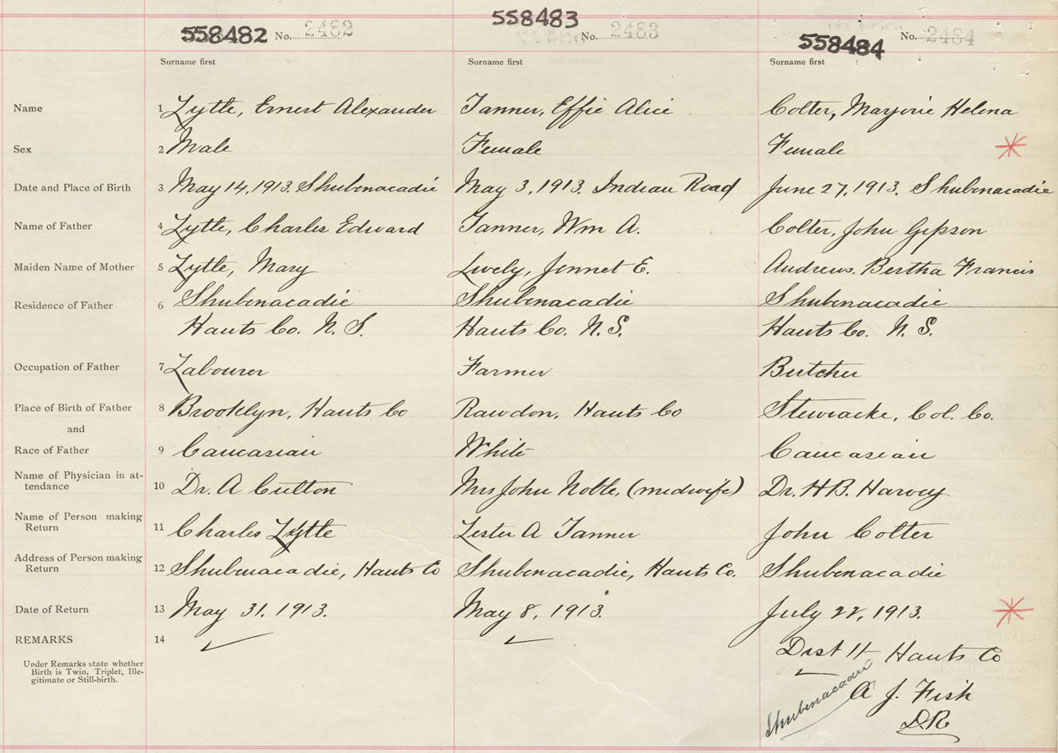 558482 No. 2482 558483 No. 2483 558484 No. 2484
Surname first Surname first Surname first
Name 1 Lytle, Ernest Alexander Tanner, Effie Alice Colter, Marjorie Helena
Sex 2 Male Female Female
Date and Place of Birth 3 May 14, 1913. Shubenacadie May 3, 1913. Indian Road June 27, 1913. Shubenacadie
Name of Father 4 Lytle, Charles Edward Tanner, Wm A. Colter, John Gipson
Maiden Name of Mother 5 Lytle, Mary Lively, Jennet E. Andrews, Bertha Francis
Residence of Father 6 Shubenacadie Shubenacadie Shubenacadie
Hants Co. N. S. Hants Co. N.S. Hants Co. N. S.
Occupation of Father 7 Labourer Farmer Butcher
Place of Birth of Father 8 Brooklyn, Hants Co Rawdon, Hants Co Stewiacke, Col. Co.
and
Race of Father 9 Caucasian White Caucasian
Name of Physician in at-
tendance 10 Dr. A Culton Mrs John Noble, (midwife) Dr. H.B. Harvey
Name of Person making
Return 11 Charles Lytle Lester A Tanner John Colter
Address of Person making
Return 12 Shubenacadie, Hants Co Shubenacadie, Hants Co. Shubenacadie
Date of Return 13 May 31. 1913. May 8, 1913. July 22, 1913.
REMARKS 14
Under Remarks state whether
Birth is Twin, Triplet, Ille-
gitimate or Still-birth.
Dist 11 Hants Co
Shubenacadie
A J. Fish
D.R